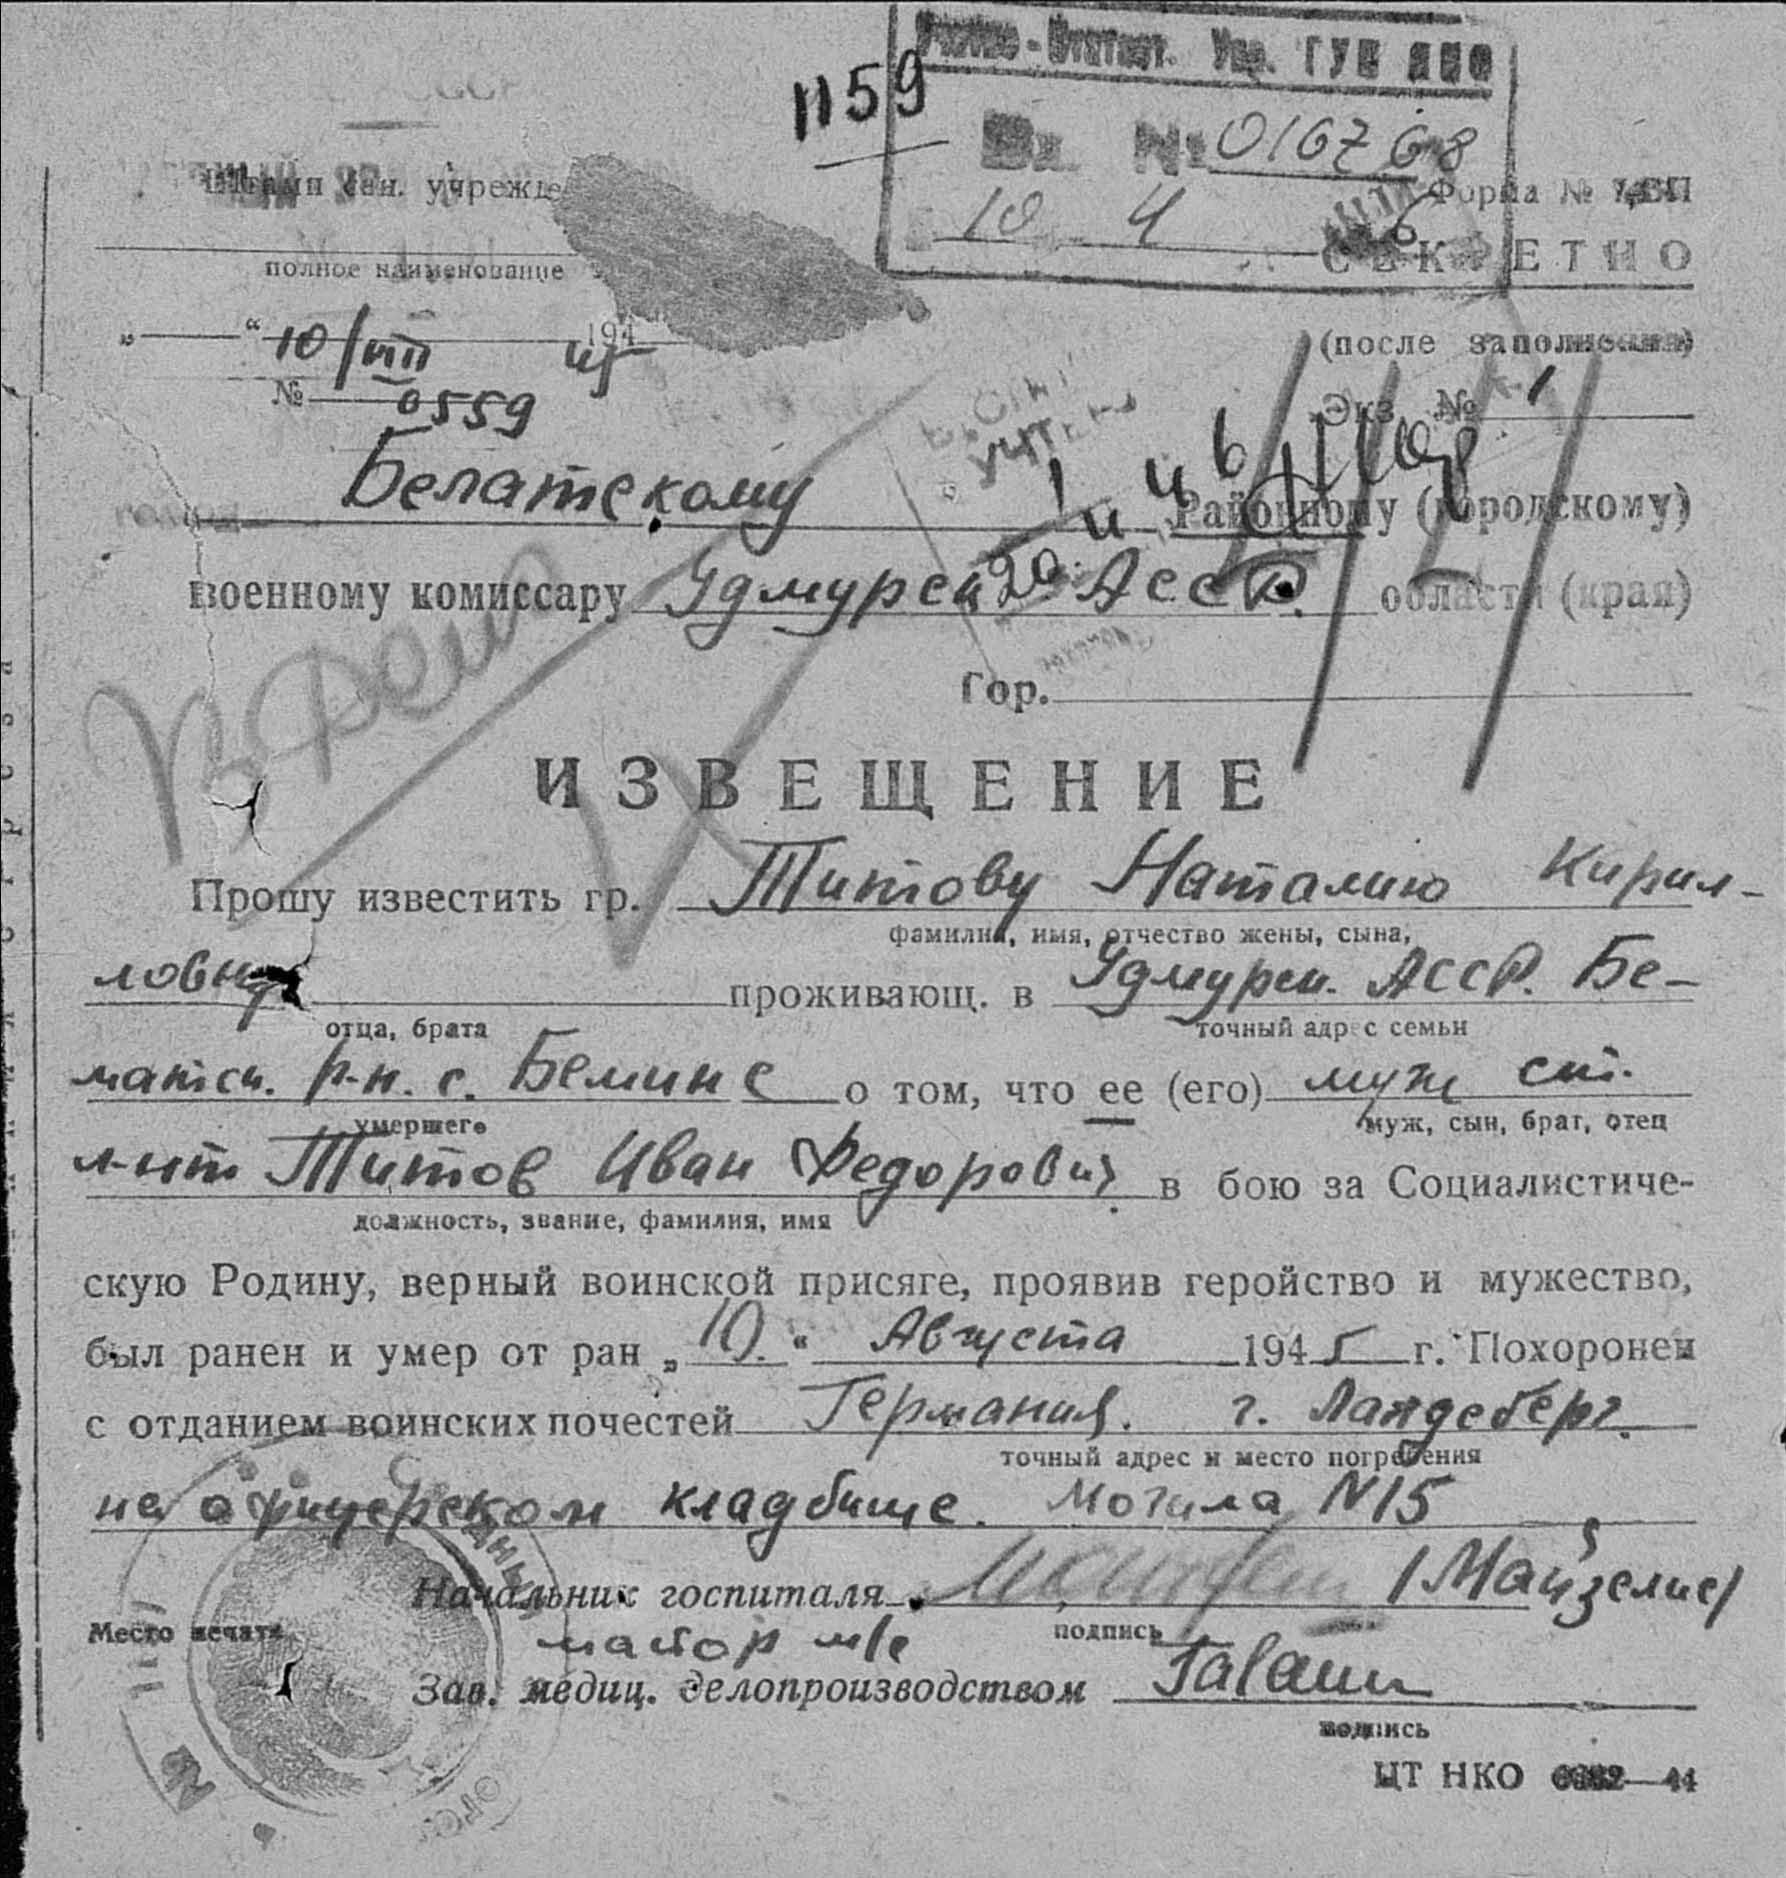 1159
Учетно-Статист. Упр. ГУК НКО
Вх. № 016768
10 4 6
Штамп сан. учрежде
Форма № 1/ВП
СЕКРЕТНО
полное наименование
(после заполнения)
„ “ 10/VIII 194 45
№ 0559
Экз. № 1
Белатскому Районному (городскому)
военному комиссару Удмурск АССР. области (края)
Гор.
В Дело
ИЗВЕЩЕНИЕ
Прошу известить гр. Титову Наталию Кирил-
фамилия, имя, отчество жены, сына,
ловну проживающ. в Удмурск. АССР. Бе-
отца, брата точный адрес семьи
матск. р-н. с. Бемине о том, что ее (его) муж ст.
умершего муж, сын, брат, отец
л-нт Титов Иван Федорович в бою за Социалистиче-
должность, звание, фамилия, имя
скую Родину, верный воинской присяге, проявив геройство и мужество,
был ранен и умер от ран „10.“ Августа 1945 г. Похоронен
с отданием воинских почестей Германия. г. Ландсберг.
точный адрес и место погребения
на офицерском кладбище. Могила N15
Начальник госпиталя /Майзелис/
Место печати майор м/с подпись
Зав. медиц. делопроизводством
подпись
ЦТ НКО 44